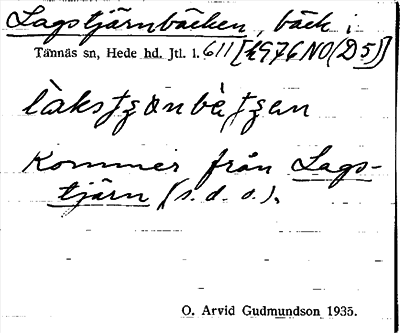 Lagstjärnbäcken, bäck i
Tännäs sn, Hede hd. Jtl. l. 611 [1976 NO (D5)]
Kommer från Lags-
tjärn (s.d.o.).
O. Arvid Gudmundson 1935.